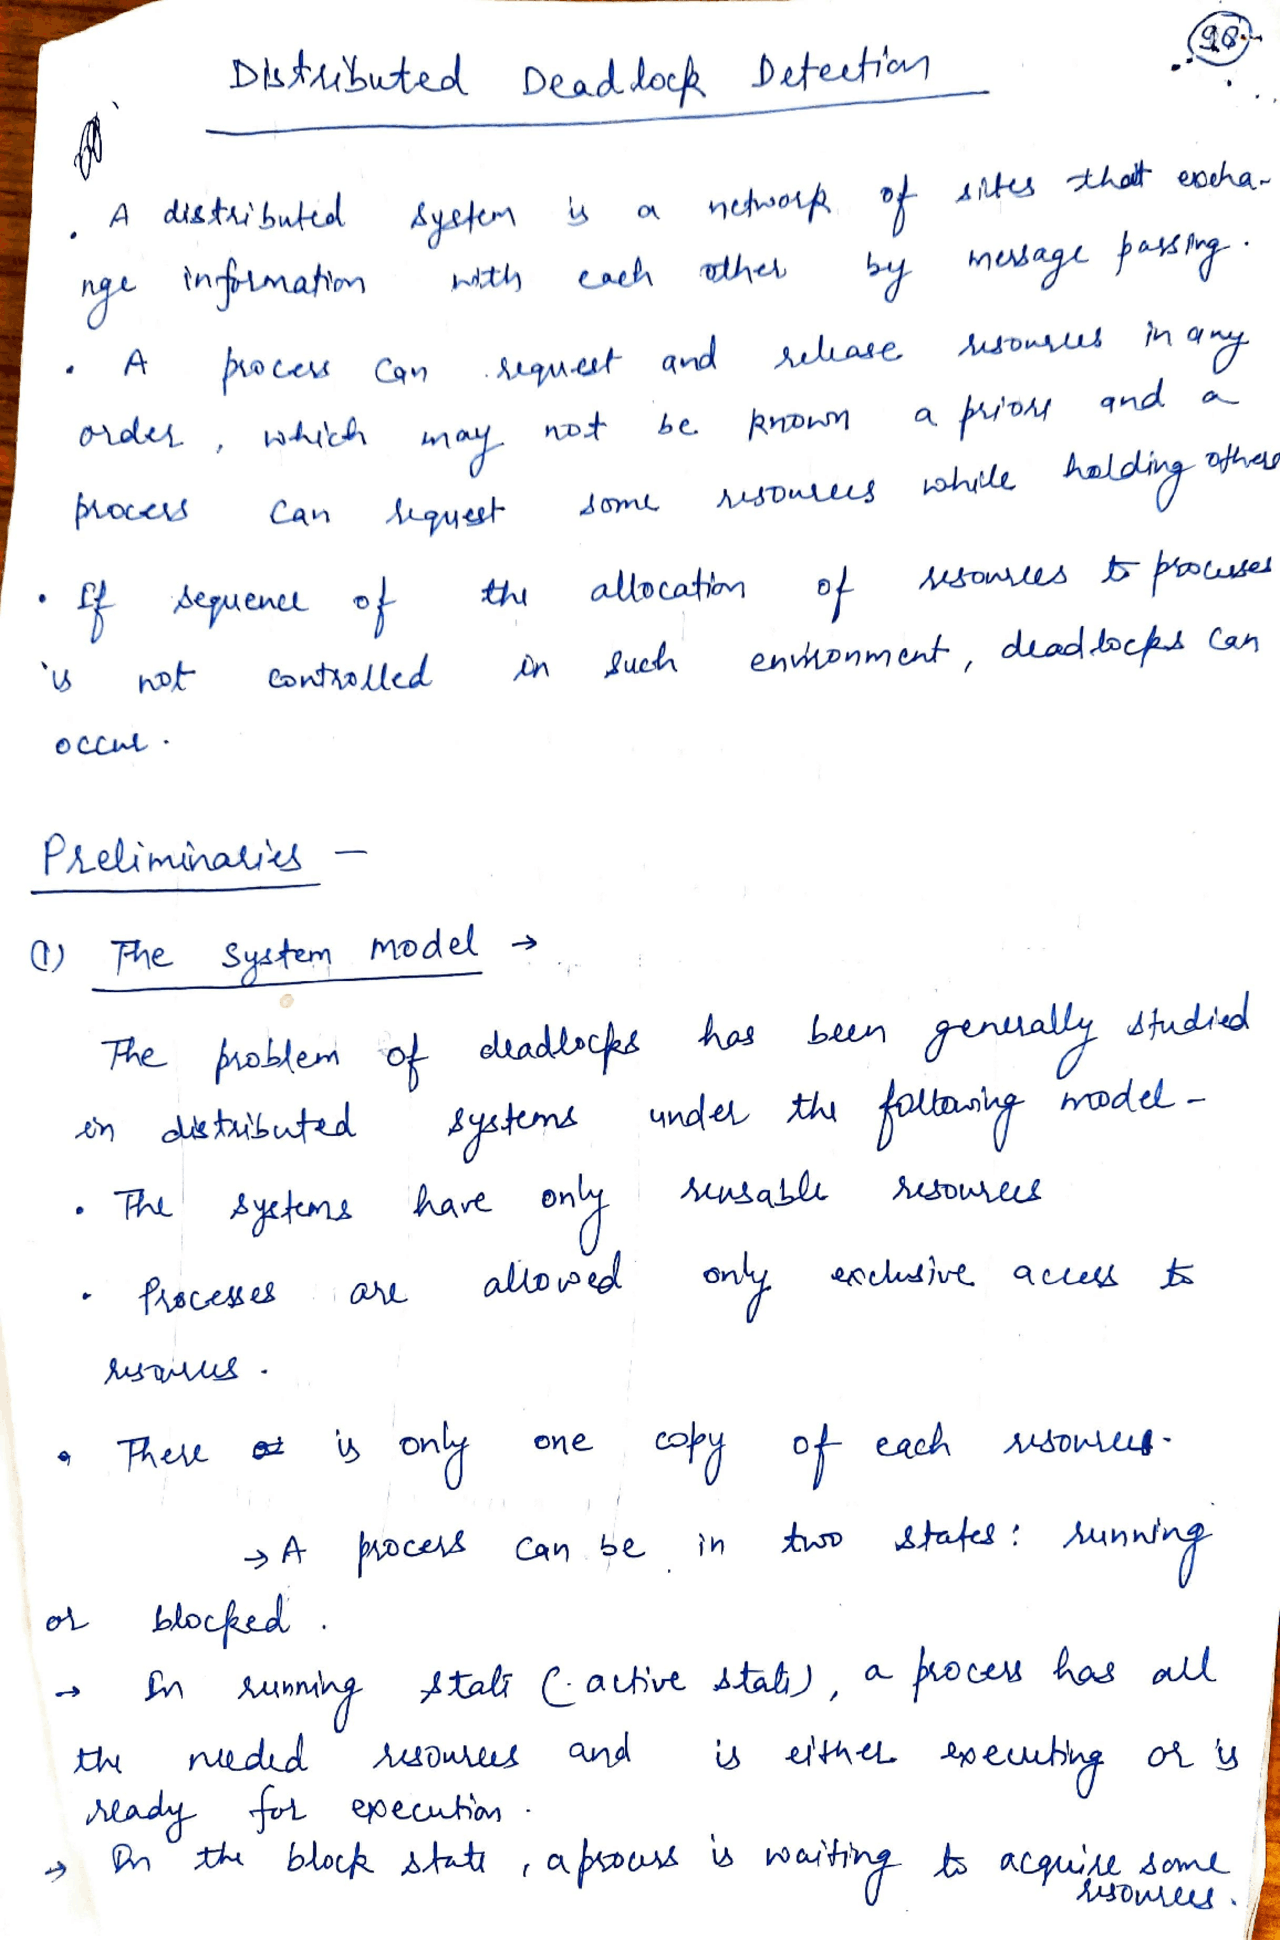 98
Distributed Deadlock Detection
• A distributed system is a network of sites that excha-
nge information with each other by message passing.
• A process can request and release resources in any
order, which may not be known a priori and a
process can request some resources while holding others
• If sequence of the allocation of resources to processes
is not controlled in such environment, deadlocks can
occur.
Preliminaries —
(1) The System model →
The problem of deadlocks has been generally studied
in distributed systems under the following model -
• The systems have only reusable resources
• Processes are allowed only exclusive access to
resources.
• There is only one copy of each resources.
→ A process can be in two states: running
or blocked.
→ In running state (active state), a process has all
the needed resources and is either executing or is
ready for execution.
→ In the block state, a process is waiting to acquire some
resources.